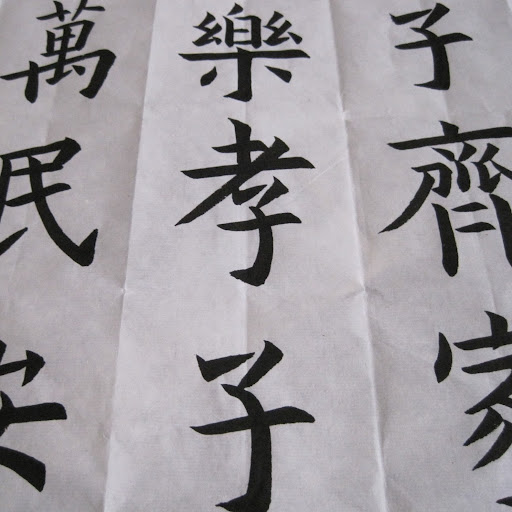 子齊家
樂孝子
萬民安